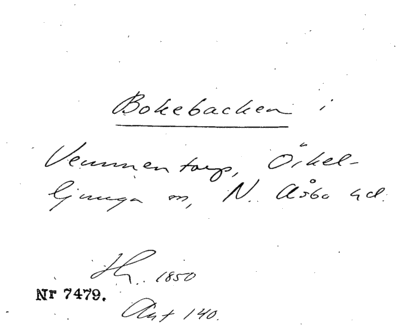 Bokebacken i
Vemmentorp, Örkel-
ljunga sn, N. Åsbo hd.
1850
Nr 7479.
Ant 140.